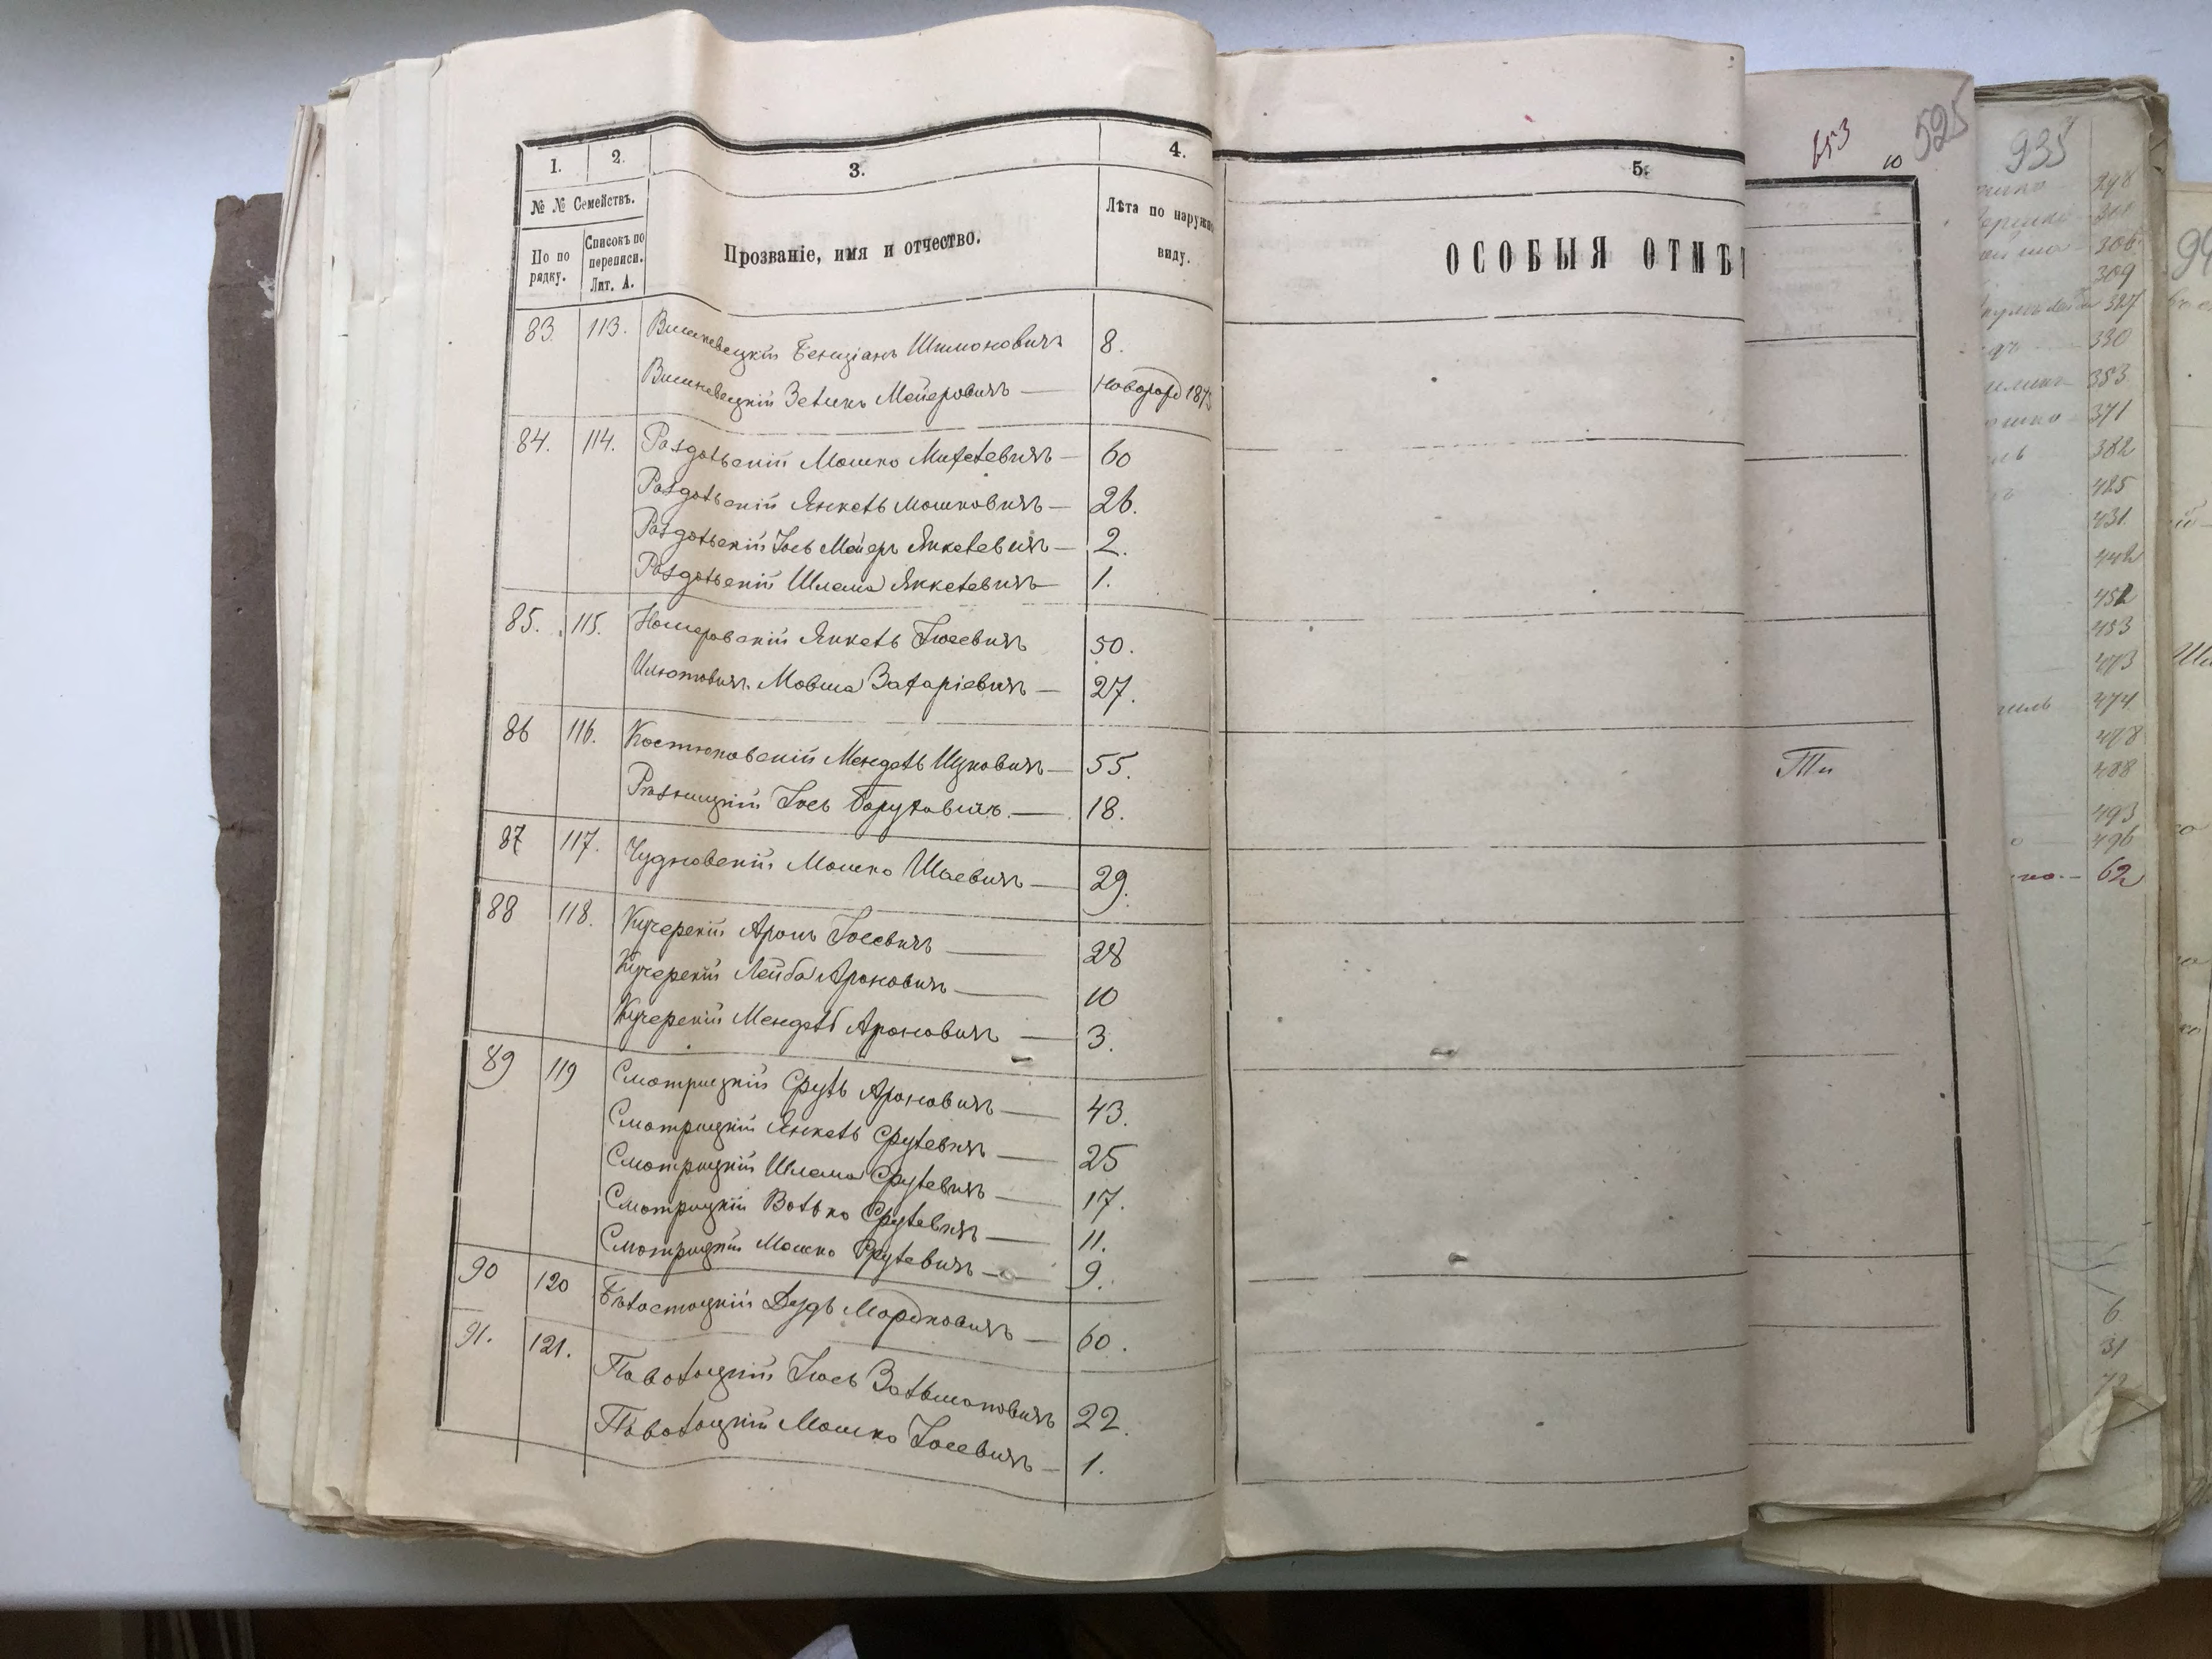 1. 2. 3. 4. 5.
№ № Семействъ.
По по рядку.
Списокъ по переписи. Лит. А.
Прозваніе, имя и отчество.
Лѣта по наружн
виду.
ОСОБЫЯ ОТМѢ
83 113. Вишневецкій Бенціанъ Шимоновичъ 8.
Вишневецкій Зеликъ Мейеровичъ — новорожд 187
84. 114. Раздольскій Мошко Михелевичъ — 60
Раздольскій Янкель Мошковичъ — 26.
Раздольскій Іось Мейеръ Янкелевичъ — 2.
Раздольскій Шлема Янкелевичъ — 1.
85. 115. Янкель Іосевичъ 50.
Мовша Захаріевичъ — 27.
86 116. Костюковскій Мендель Ицковичъ — 55.
Іось Боруховичъ — 18.
87 117. Чудновскій Мошко Шаевичъ — 29.
88 118. Кучерскій Аронъ Іосевичъ — 28
Кучерскій Лейба Ароновичъ — 10
Кучерскій Мендель Ароновичъ — 3.
89 119 Смотрицкій Сруль Ароновичъ — 43.
Смотрицкій Янкель Срулевичъ — 25
Смотрицкій Шлема Срулевичъ — 17.
Смотрицкій Волько Срулевичъ — 11.
Смотрицкій Мошко Срулевичъ — 9.
90 120 Бѣлостоцкій Дудь Мордковичъ — 60.
91. 121. Паволоцкій Іось Зальмановичъ 22.
Паволоцкій Мошко Іосевичъ — 1.
653 10 525
935
298
306
309
327
330
353
371
382
425
431
442
452
453
473
474
478
488
493
496
62
6
31